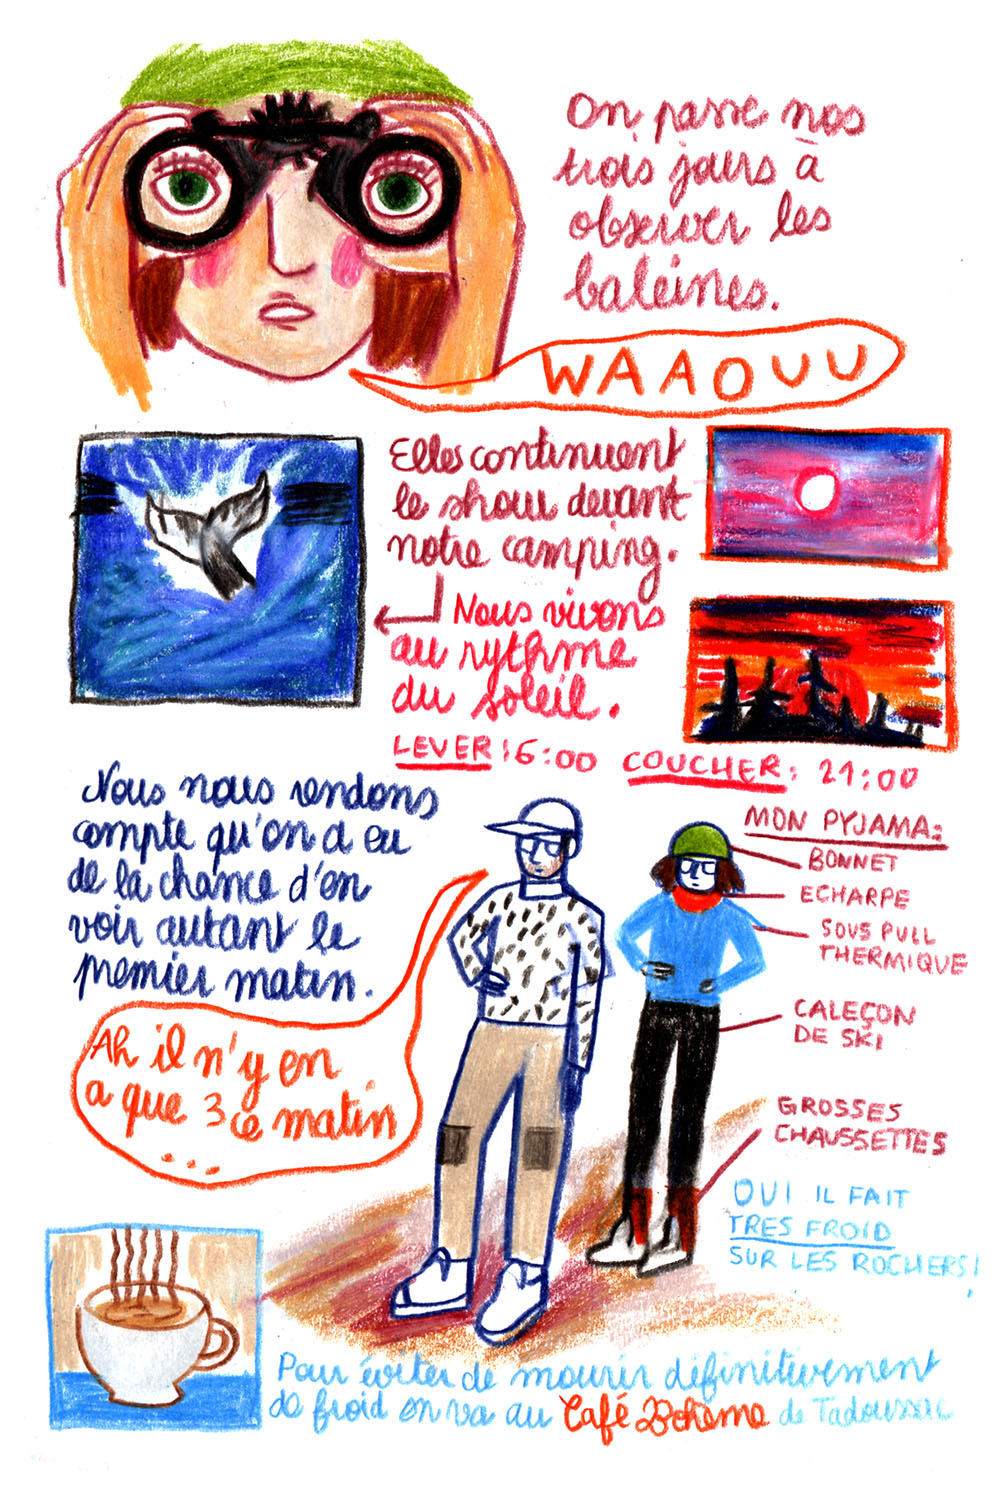 On passe nos
trois jours à
observer les
baleines.
WAAOUU
Elles continuent
le show devant
notre camping.
Nous vivons
au rythme
du soleil.
LEVER : 6:00 COUCHER : 21:00
Nous nous rendons
compte qu'on a eu
de la chance d'en
voir autant le
premier matin.
Ah il n'y en
a que 3 ce matin
...
MON PYJAMA:
BONNET
ECHARPE
SOUS PULL
THERMIQUE
CALEÇON
DE SKI
GROSSES
CHAUSSETTES
OUI IL FAIT
TRES FROID
SUR LES ROCHERS!
Pour éviter de mourir définitivement
de froid on va au Café Bohème de Tadoussac